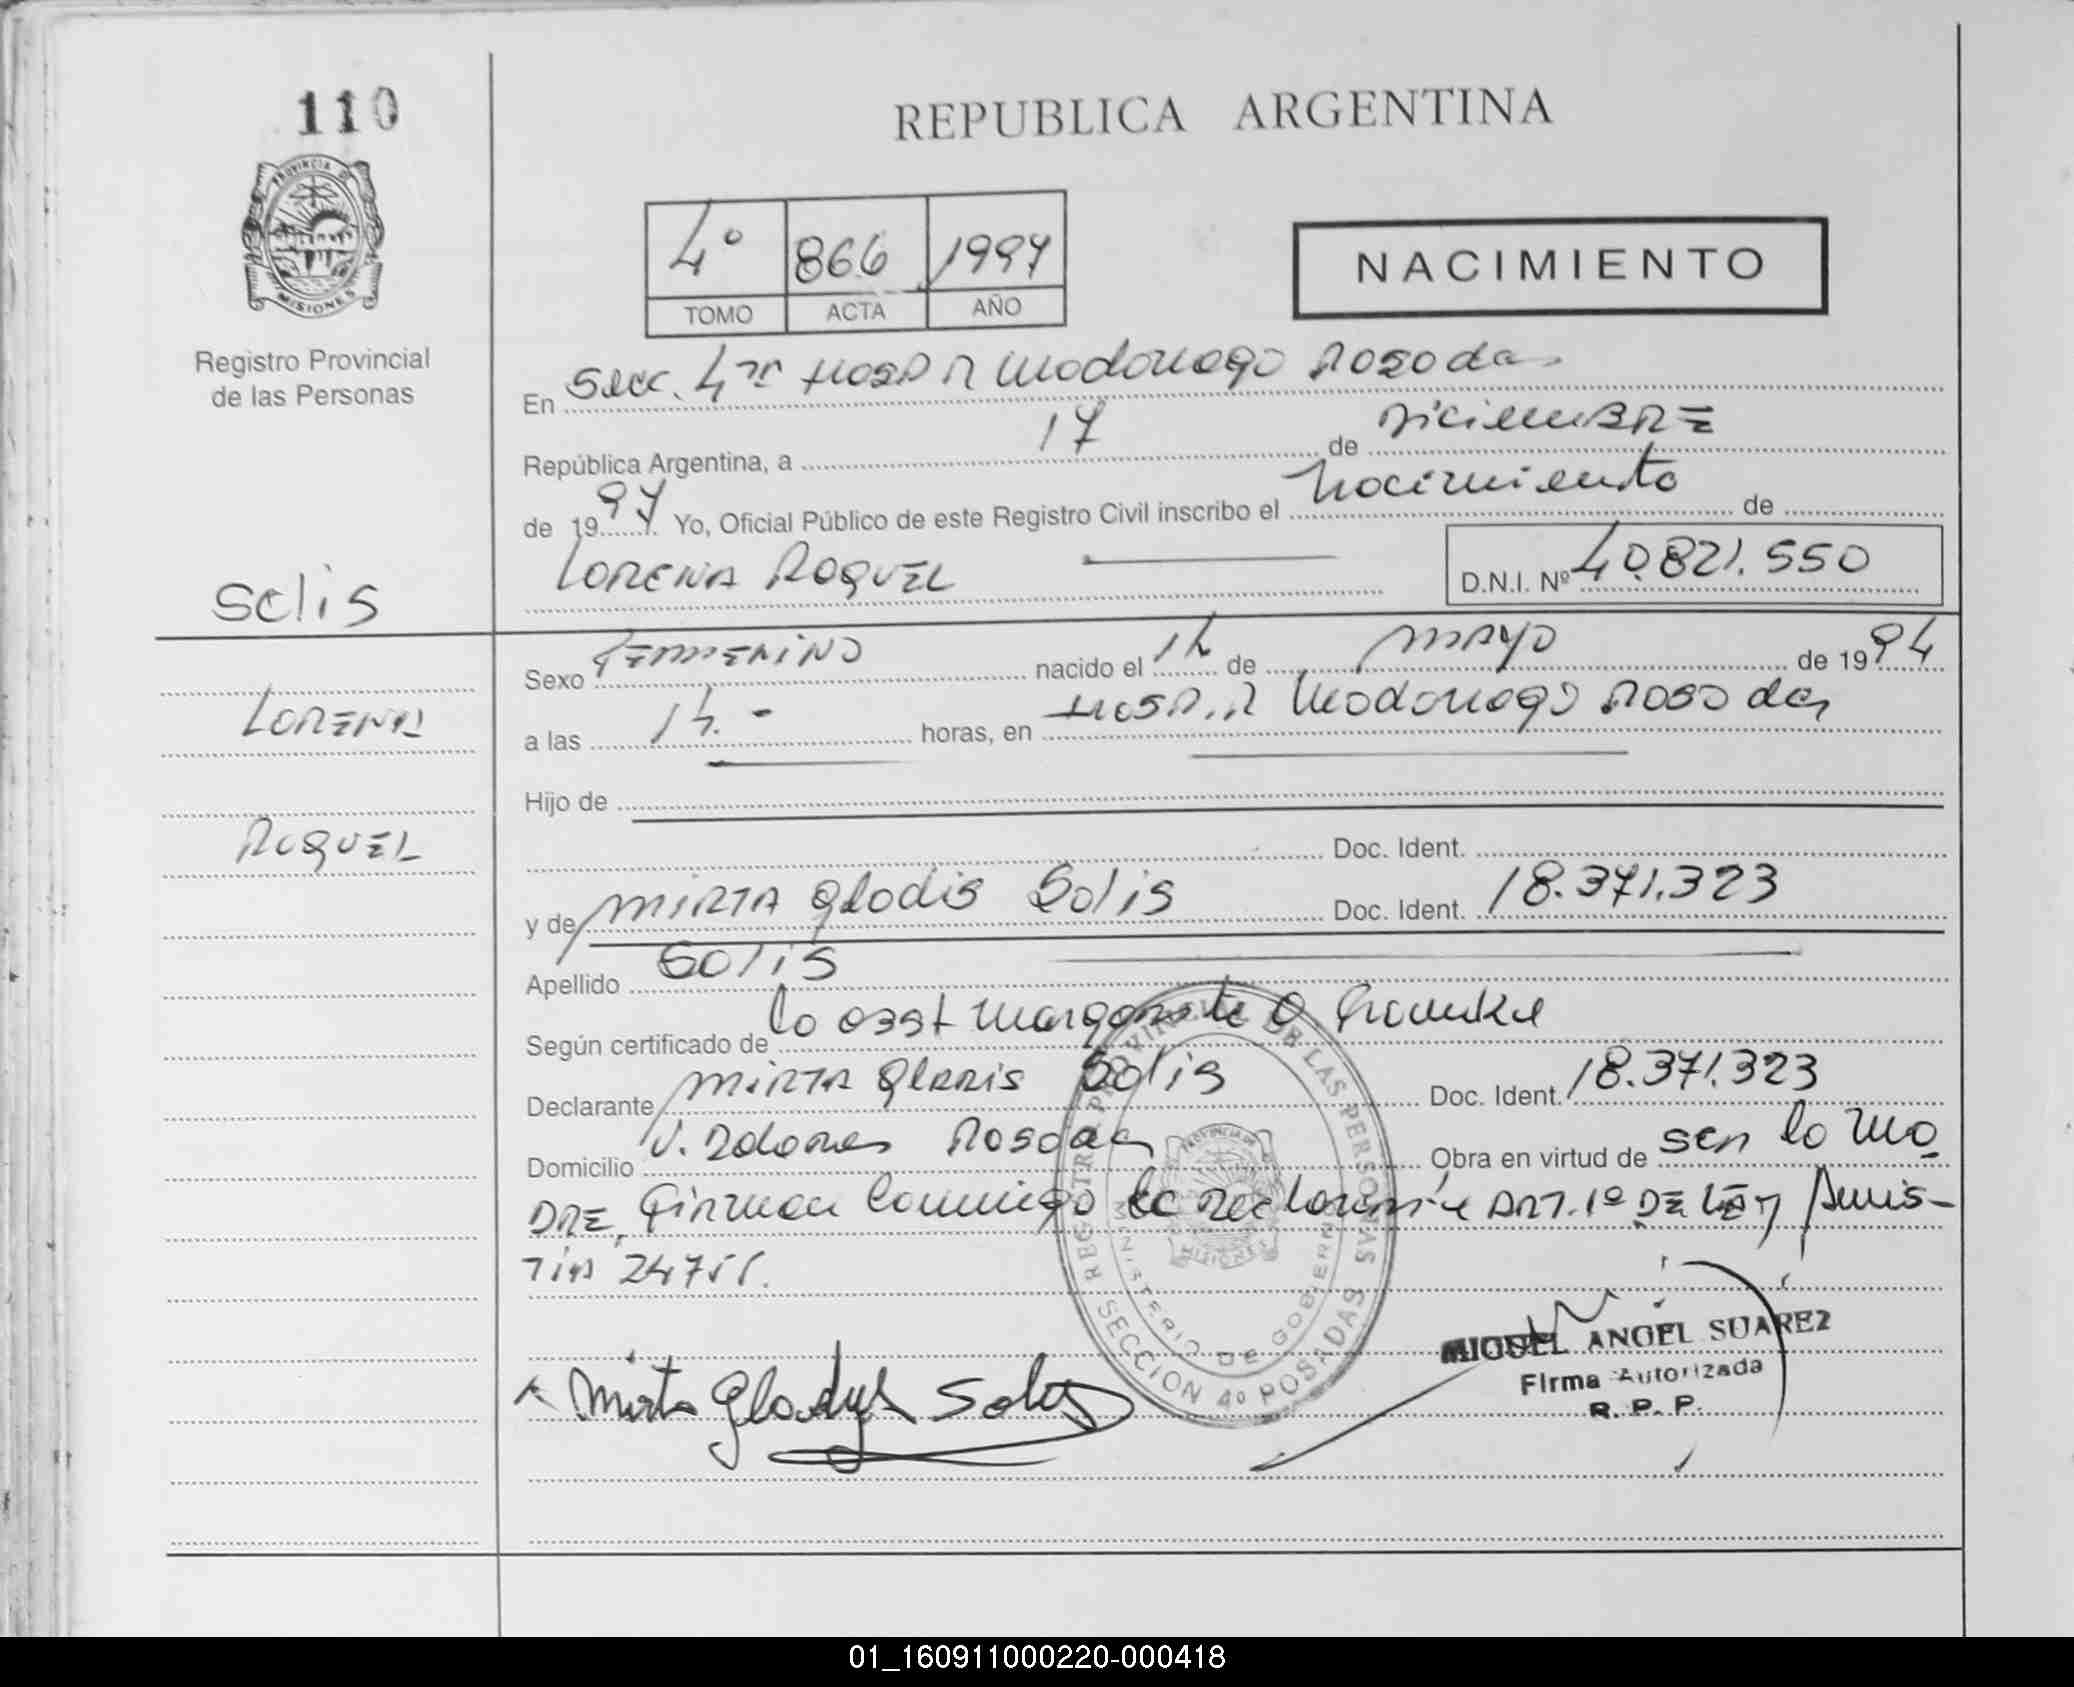 110
REPUBLICA ARGENTINA
PROVINCIA D
MISIONES
Registro Provincial
de las Personas
4º 866 1997
TOMO ACTA AÑO
NACIMIENTO
En Secc. 4ta Hosp R Madariaga Posadas
República Argentina, a 17 de Diciembre
de 1997 Yo, Oficial Público de este Registro Civil inscribo el Nacimiento de
LORENA RAQUEL
D.N.I. Nº 40.821.550
Solis
LORENA
RAQUEL
Sexo FEMMENINO nacido el 14 de MAYO de 1994
a las 14.- horas, en Hosp. R Madariaga Posadas
Hijo de
Doc. Ident.
y de MIRTA Gladis Solis Doc. Ident. 18.371.323
Apellido Solis
Según certificado de la obst Margarita O
Declarante MIRTA Gladis Solis Doc. Ident. 18.371.323
Domicilio V. Dolores Posadas Obra en virtud de ser la Ma
DRE, Firman Conmigo ART. 1º DE LEY Amnis-
TIA
REGISTRO PROVINCIAL DE LAS PERSONAS
MINISTERIO DE GOBIERNO
PROVINCIA DE
MISIONES
SECCION 4º POSADAS
Mirta Gladys Solis
MIGUEL ANGEL SUAREZ
Firma Autorizada
R. P. P.
01_160911000220-000418